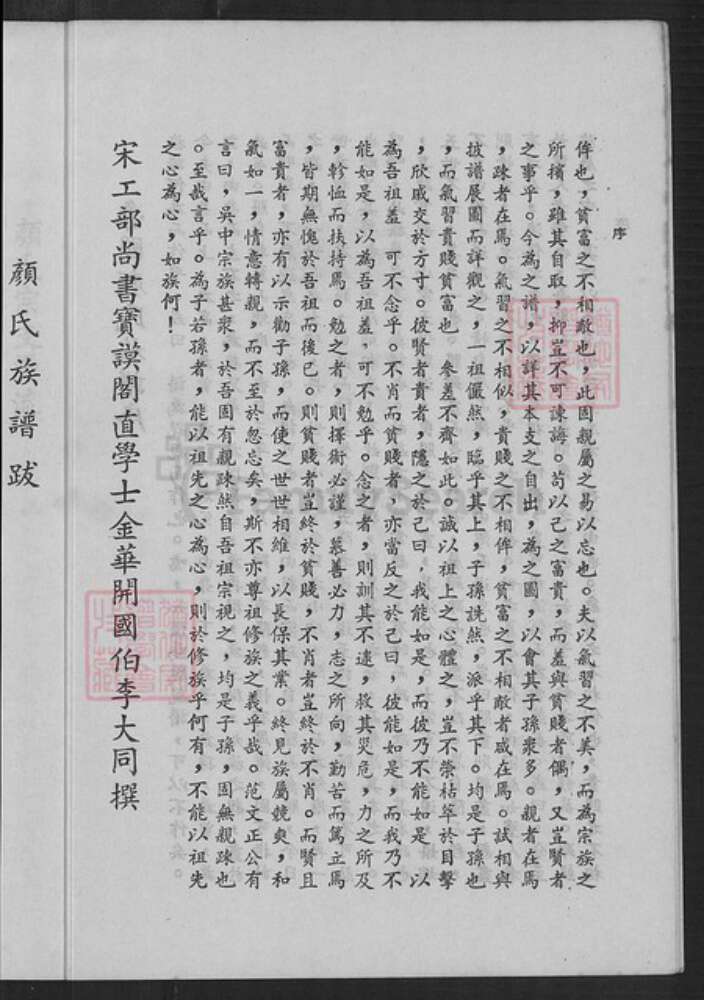 序
侔也，貧富之不相敵也，此固親屬之易以忘也。夫以氣習之不美，而為宗族之
所擯，雖其自取，抑豈不可諫誨。苟以己之富貴，而羞與貧賤者偶，又豈賢者
之事乎。今為之譜，以詳其本支之自出，為之圖，以會其子孫衆多。親者在焉
，踈者在焉。氣習之不相似，貴賤之不相侔，貧富之不相敵者咸在焉。試相與
披譜展圖而詳觀之，一祖儼然，臨乎其上，子孫詵然，派乎其下。均是子孫也
，而氣習貴賤貧富也　參差不齊如此。誠以祖上之心體之，豈不榮枯萃於目擊
，欣戚交於方寸。彼賢者貴者，隱之於己曰，我能如是，而彼乃不能如是　以
為吾祖羞　可不念乎。不肖而貧賤者，亦當反之於己曰，彼能如是，而我乃不
能如是，以為吾祖羞，可不勉乎。念之者，則訓其不逮，救其災危，力之所及
，軫恤而扶持焉。勉之者，則擇術必謹，慕善必力，志之所向，勤苦而篤立焉
，皆期無愧於吾祖而後已。則貧賤者豈終於貧賤，不肖者豈終於不肖。而賢且
富貴者，亦有以示勸子孫，而使之世世相維，以長保其業。終見族屬競爽，和
氣如一，情意轉親，而不至於忽忘矣，斯不亦尊祖修族之義乎哉。范文正公有
言曰，吳中宗族甚衆，於吾固有親踈然自吾祖宗視之，均是子孫，固無親踈也
。至哉言乎。為子若孫者，能以祖先之心為心，則於修族乎何有，不能以祖先
之心為心，如族何！
宋工部尚書寶謨閣直學士金華開國伯李大同撰
顏氏族譜跋